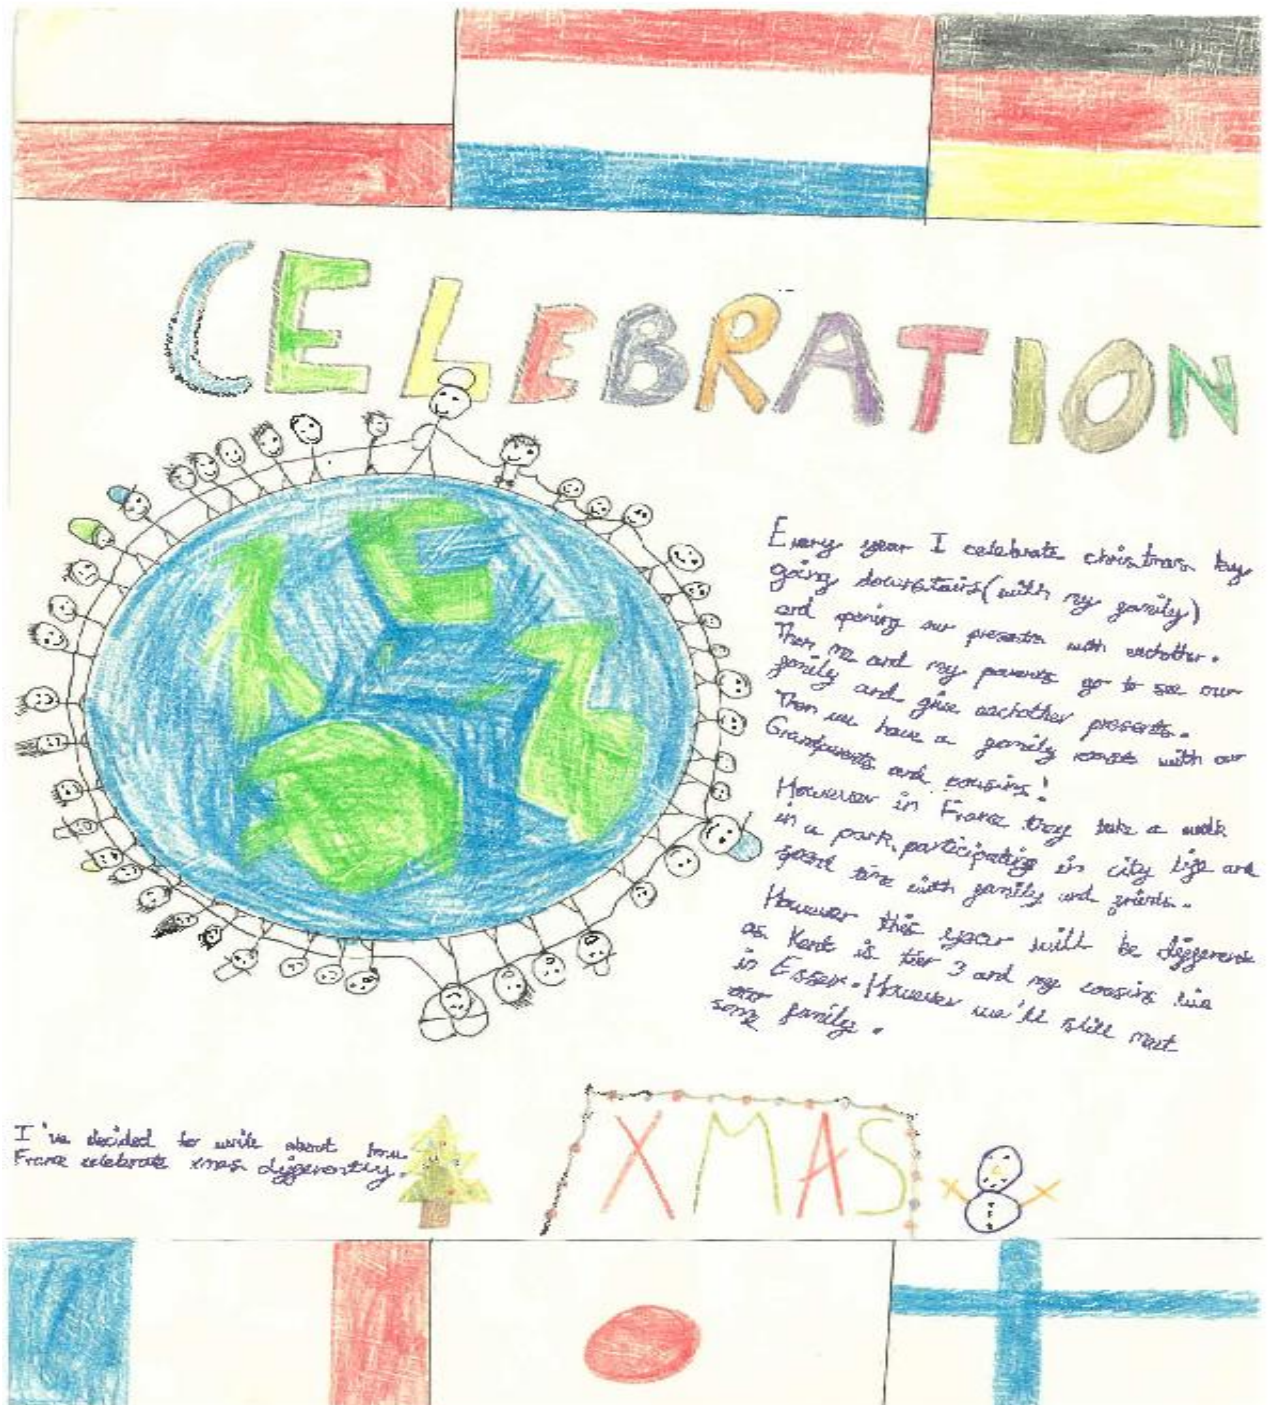 CELEBRATION
Every year I celebrate christmas by
going downstairs (with my family)
and opening our presents with eachother.
Then me and my parents go to see our
family and give eachother presents.
Then we have a family roast with our
Grandparents and cousins!
However in France they take a walk
in a park, participating in city life and
spend time with family and friends.
However this year will be different
as Kent is tier 3 and my cousins live
in Essex. However we'll still meet
some family.
I've decided to write about how
France celebrate xmas differently.
XMAS